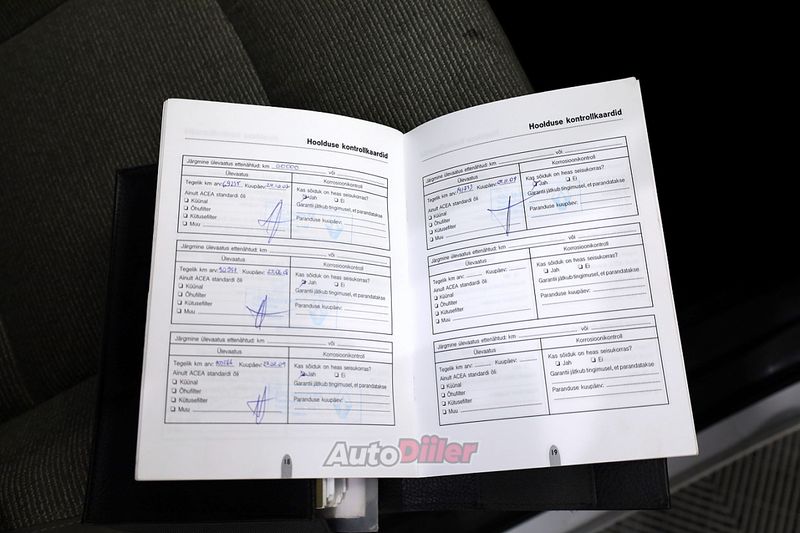 Hoolduse kontrollkaardid
Järgmine ülevaatus ettenähtud: km 60000 või
Ülevaatus Korrosioonikontroll
Tegelik km arv: Kuupäev:
Kas sõiduk on heas seisukorras?
Ainult ACEA standardi õli
Jah Ei
Küünal
Garantii jätkub tingimusel, et parandatakse
Õhufilter
Kütusefilter
Paranduse kuupäev:
Muu
Järgmine ülevaatus ettenähtud: km või
Ülevaatus Korrosioonikontroll
Tegelik km arv: Kuupäev:
Kas sõiduk on heas seisukorras?
Ainult ACEA standardi õli
Jah Ei
Küünal
Garantii jätkub tingimusel, et parandatakse
Õhufilter
Kütusefilter
Paranduse kuupäev:
Muu
Järgmine ülevaatus ettenähtud: km või
Ülevaatus Korrosioonikontroll
Tegelik km arv: Kuupäev:
Kas sõiduk on heas seisukorras?
Ainult ACEA standardi õli
Jah Ei
Küünal
Garantii jätkub tingimusel, et parandatakse
Õhufilter
Kütusefilter
Paranduse kuupäev:
Muu
18
Hoolduse kontrollkaardid
Järgmine ülevaatus ettenähtud: km või
Ülevaatus Korrosioonikontroll
Tegelik km arv: Kuupäev:
Kas sõiduk on heas seisukorras?
Ainult ACEA standardi õli
Jah Ei
Küünal
Garantii jätkub tingimusel, et parandatakse
Õhufilter
Kütusefilter
Paranduse kuupäev:
Muu
Järgmine ülevaatus ettenähtud: km või
Ülevaatus Korrosioonikontroll
Tegelik km arv: Kuupäev:
Kas sõiduk on heas seisukorras?
Ainult ACEA standardi õli
Jah Ei
Küünal
Garantii jätkub tingimusel, et parandatakse
Õhufilter
Kütusefilter
Paranduse kuupäev:
Muu
Järgmine ülevaatus ettenähtud: km või
Ülevaatus Korrosioonikontroll
Tegelik km arv: Kuupäev:
Kas sõiduk on heas seisukorras?
Ainult ACEA standardi õli
Jah Ei
Küünal
Garantii jätkub tingimusel, et parandatakse
Õhufilter
Kütusefilter
Paranduse kuupäev:
Muu
19
AutoDiiler